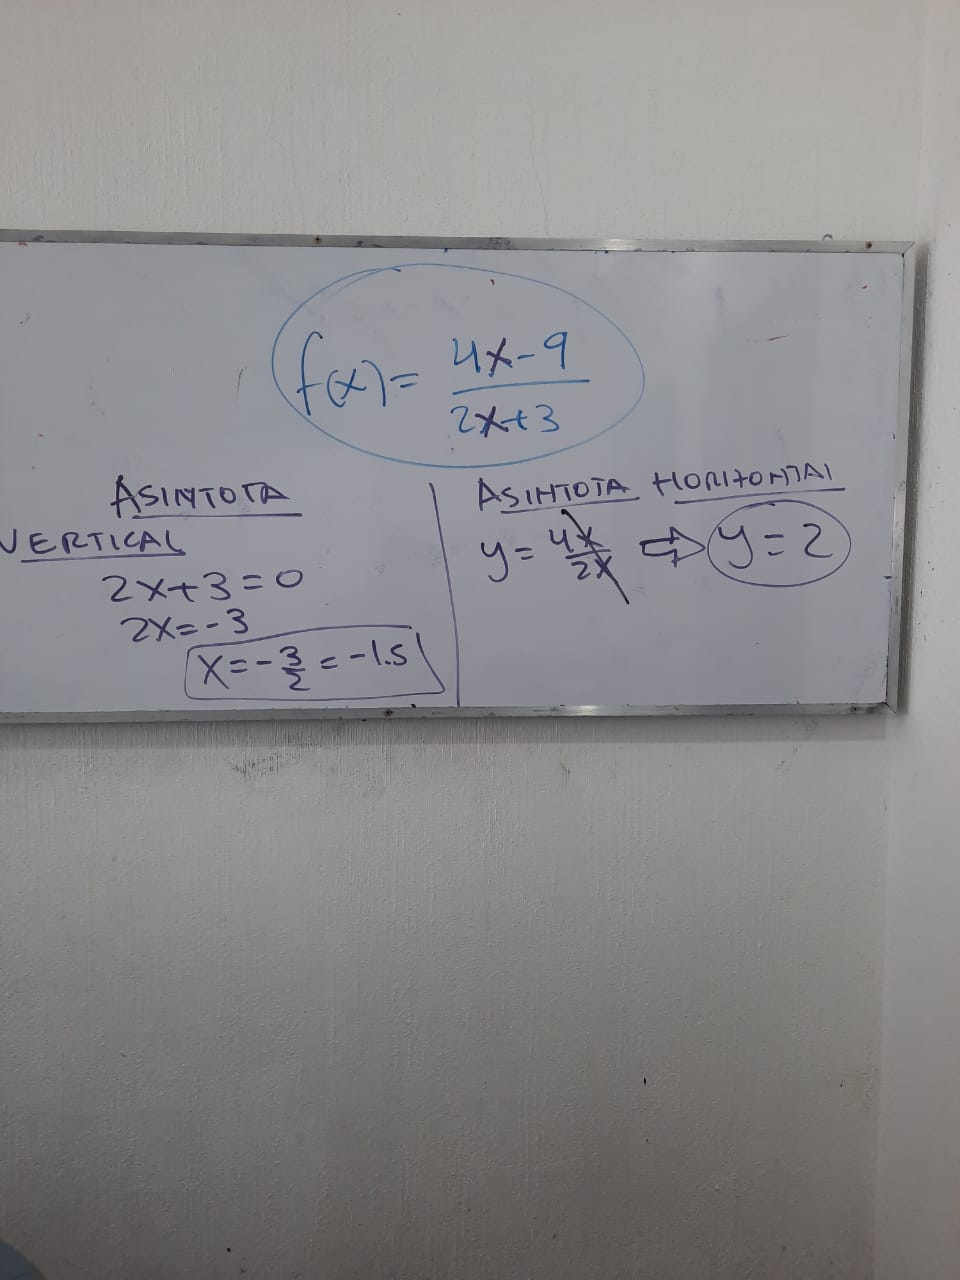 f(x) = 4x-9
2x+3
ASINTOTA
VERTICAL
2x+3=0
2x=-3
x=-3/2=-1.5
ASINTOTA HORIZONTAL
y=4x/2x ⇒ y=2